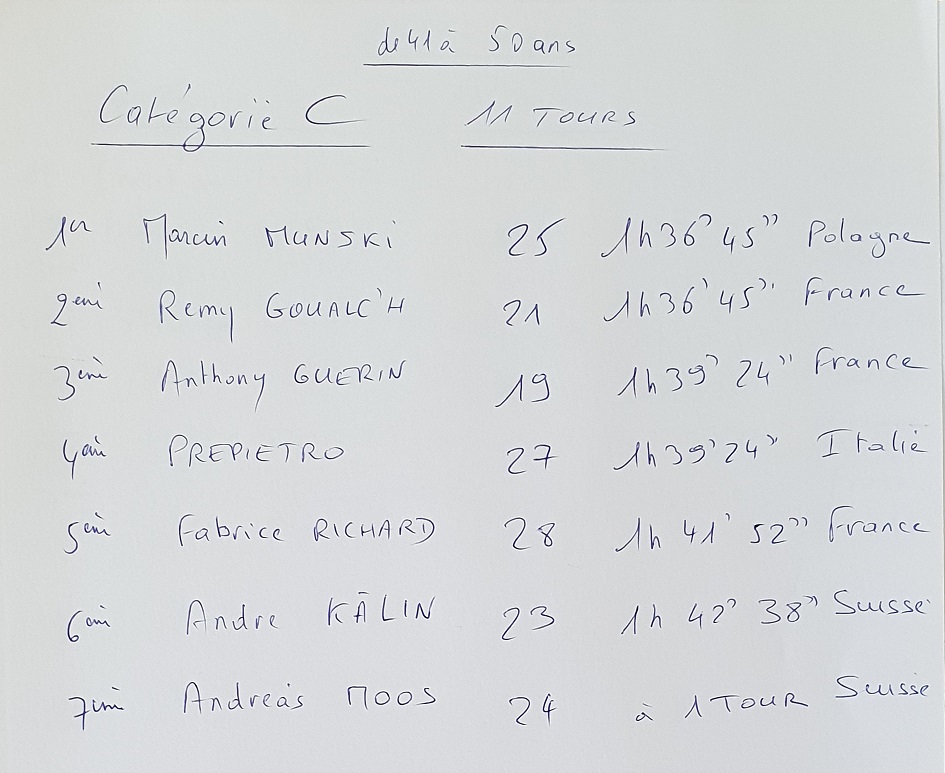 de 41 à 50 ans
Catégorie C 11 TOURS
1er Marcin MUNSKI 25 1h36' 45'' Pologne
2ème Remy GOUALC'H 21 1h36' 45'' France
3ème Anthony GUERIN 19 1h39' 24'' France
4ème PREPIETRO 27 1h39' 24'' Italie
5ème Fabrice RICHARD 28 1h 41' 52'' France
6ème Andre KÄLIN 23 1h 42' 38'' Suisse
7ème Andreas MOOS 24 à 1 TOUR Suisse